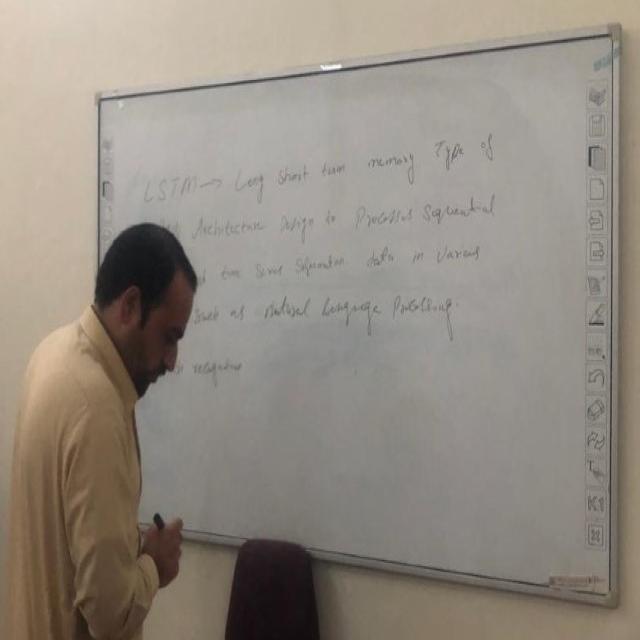 LSTM → Long short term memory Type of
Architecture Design to Process Sequential
time series sequential data in various
such as Natural Language Processing.